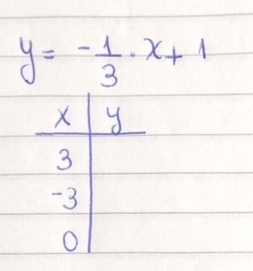 y = -1/3 · x + 1
x | y
3 |
-3 |
0 |